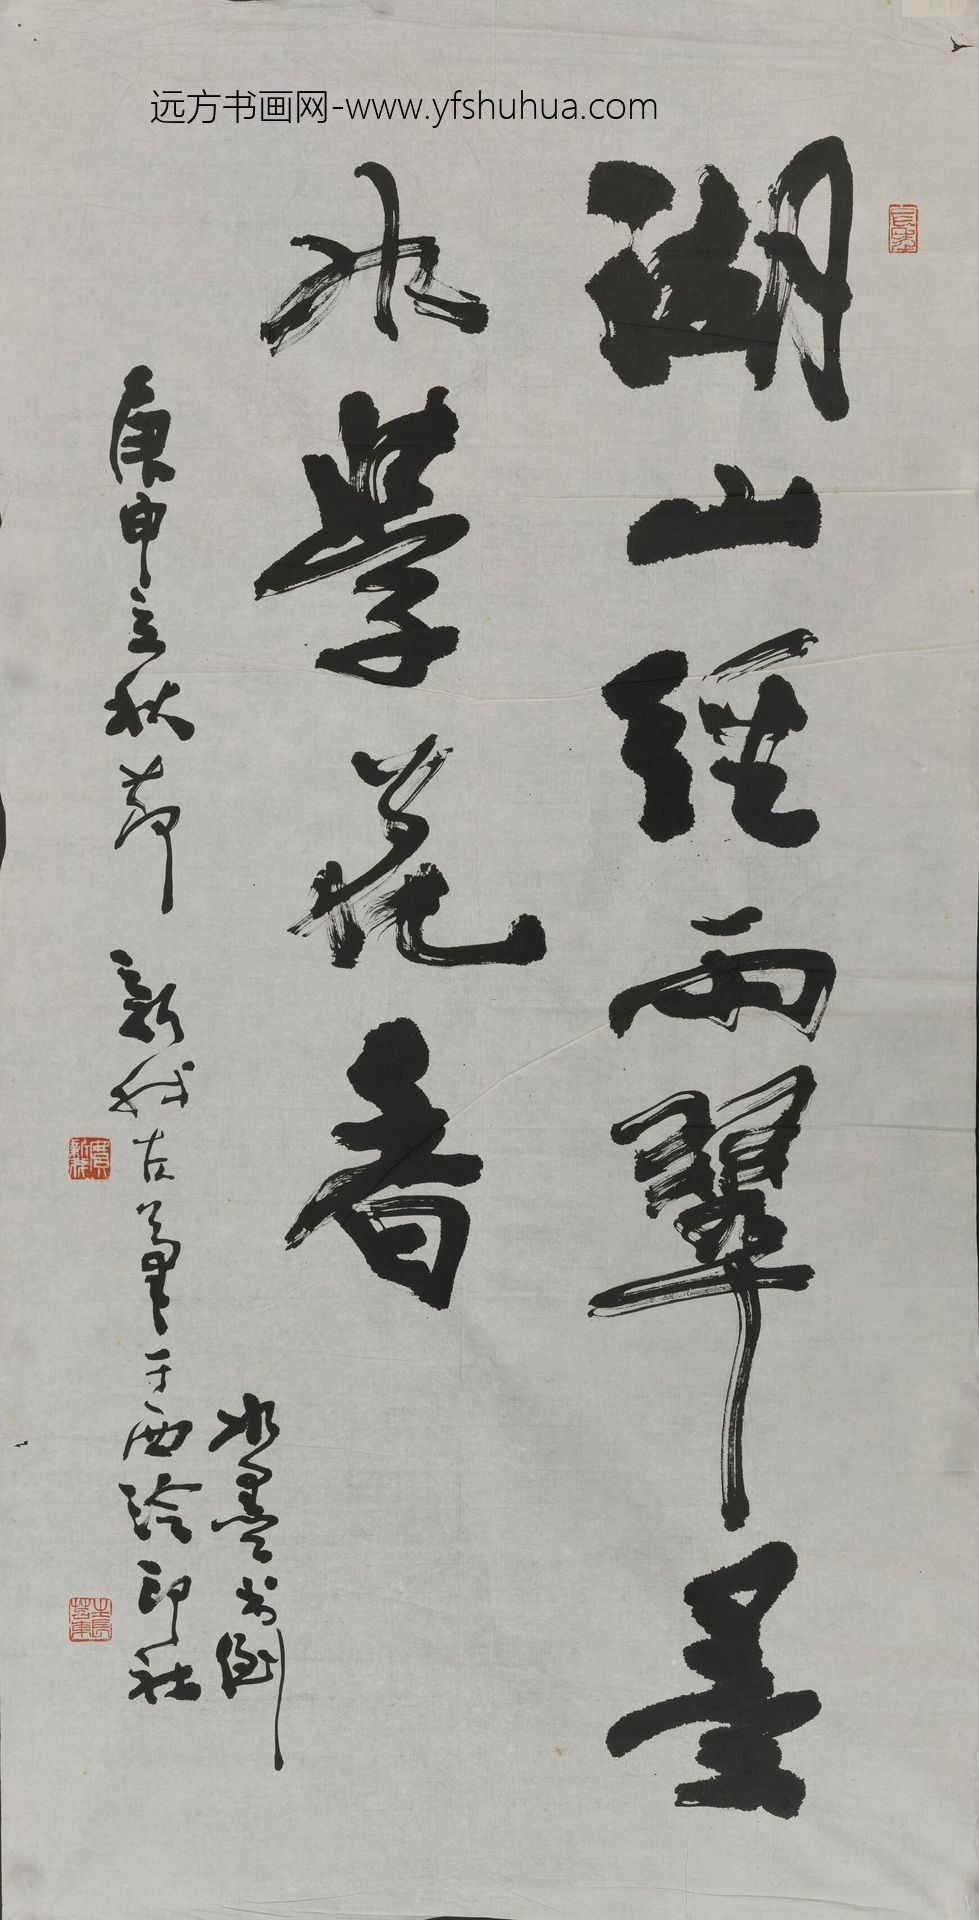 远方书画网-www.yfshuhua.com
湖山经雨翠墨
水学花香
水墨书倒
庚申立秋节 新我左笔于西泠印社